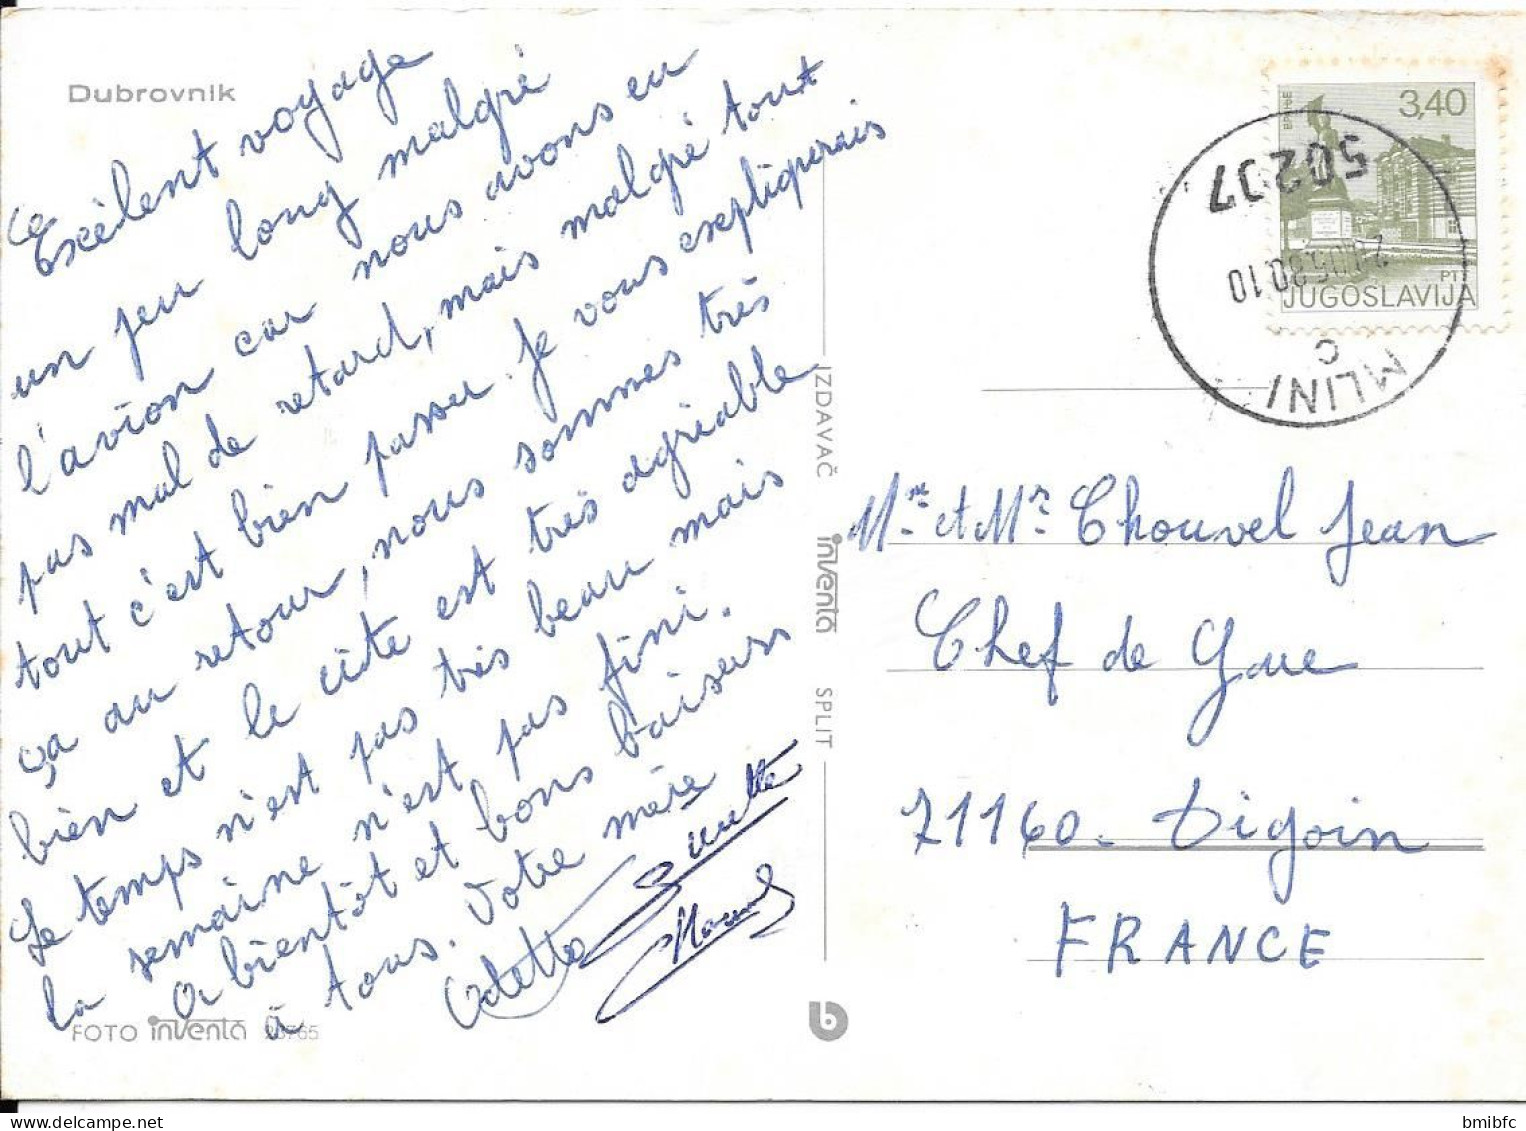 Dubrovnik
Excèlent voyage
un peu long malgré
l'avion car nous avons eu
pas mal de retard, mais malgré tout
tout c'est bien passer. Je vous expliquerais
ça au retour, nous sommes très
bien et le cite est très agréable
Le temps n'est pas très beau mais
la semaine n'est pas fini.
A bientôt et bons baisers
à tous. Votre mère
Odette
FOTO inventa 28765
IZDAVAČ inventa SPLIT
3,40
PTT
JUGOSLAVIJA
50207
MLINI
C
Mme et Mr Chouvel Jean
Chef de Gare
71160. Digoin
FRANCE
bmibfc